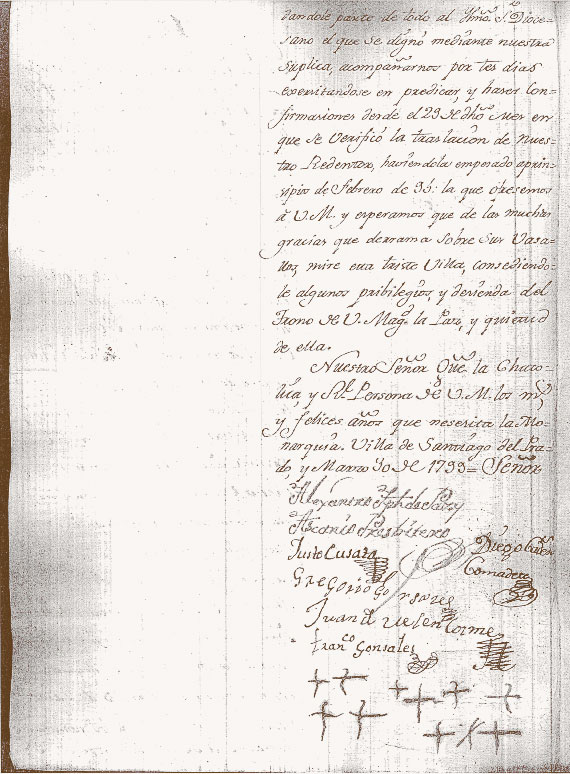 dandole parte de todo al Yllmo. S. Dioce=
sano el que se dignó mediante nuestra
suplica, acompañarnos por tres dias
exersitandose en predicar, y haser Con=
firmasiones desde el 29 de dho mes en
que se verificó la traslacion de nues=
tro Redentor, haviendola empesado aprin=
sipio de Febrero de 95. la que ofresemos
á V.M. y esperamos que de las muchas
gracias que derrama sobre sus Vasa=
llos, mire esta triste Villa, consediendo=
le algunos pribilegios, y desienda del
Trono de V. Mag. la Paz, y quietud
de ella.
Nuestro Señor Gue. la Chato=
lica, y Rl. Persona de V.M. los ms,
y felices años que nesesita la Mo=
narquia. Villa de Santiago del Pra=
do, y Marzo 30 de 1799= Señor
Alexandro
Ascanio Presbitero
Diego
Justo Cusata
Comadera
Gregorio Gonsales
Juan
Franco Gonsales